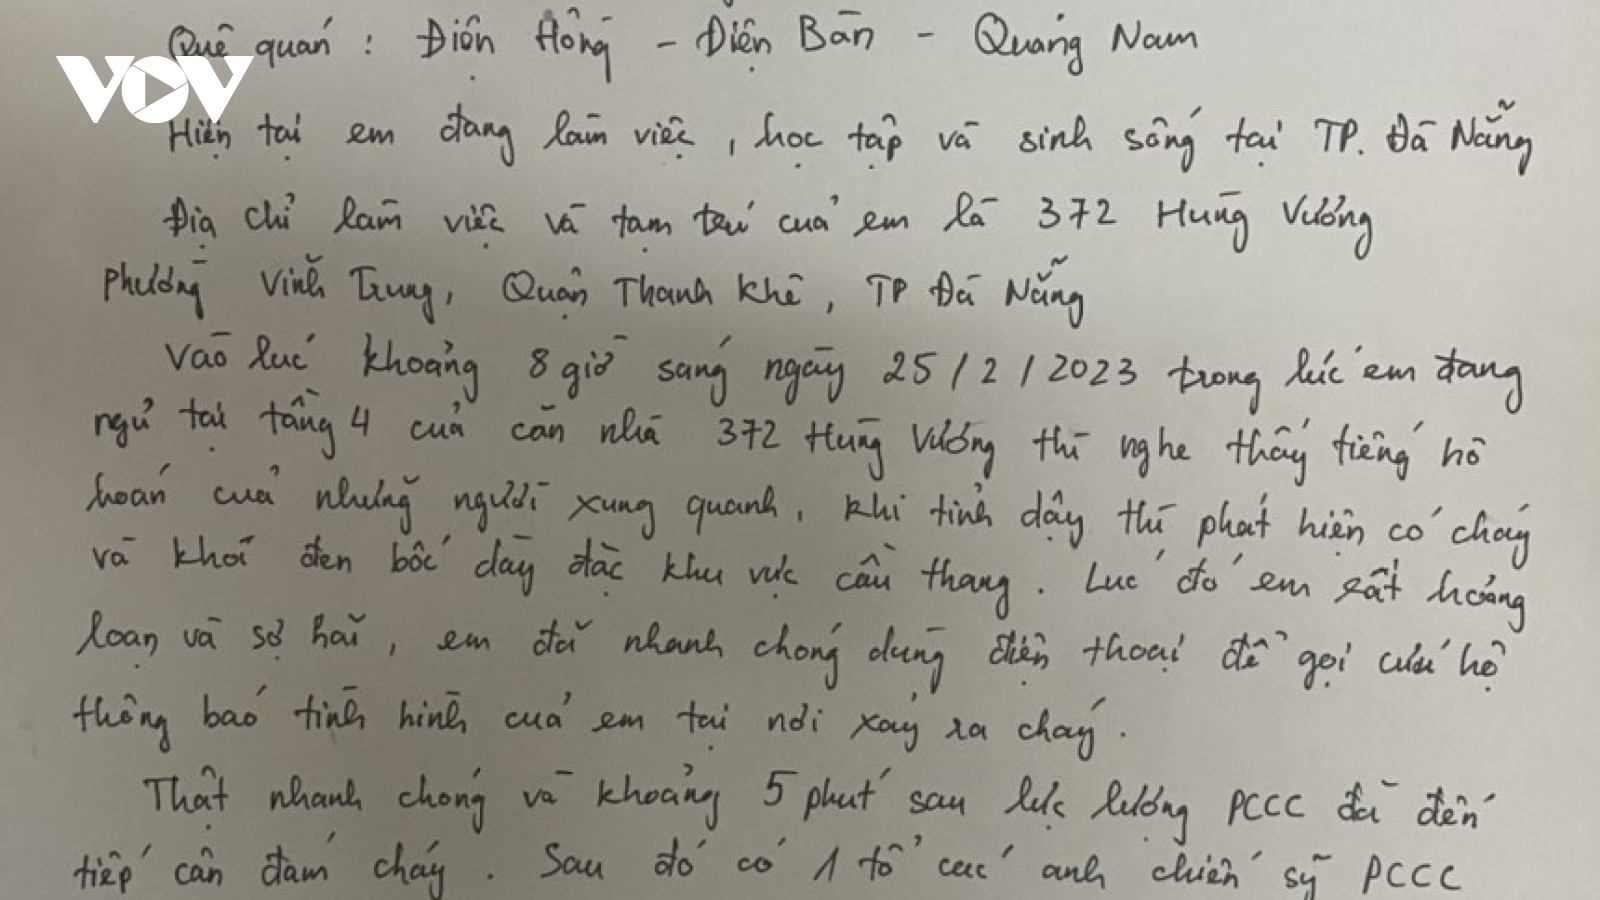 Quê quán : Điện Hồng - Điện Bàn - Quảng Nam
VOV
Hiện tại em đang làm việc , học tập và sinh sống tại TP. Đà Nẵng
Địa chỉ làm việc và tạm trú của em là 372 Hùng Vương
Phường Vĩnh Trung, Quận Thanh Khê, TP Đà Nẵng
Vào lúc khoảng 8 giờ sáng ngày 25/2/2023 trong lúc em đang
ngủ tại tầng 4 của căn nhà 372 Hùng Vương thì nghe thấy tiếng hô
hoán của những người xung quanh, khi tỉnh dậy thì phát hiện có cháy
và khói đen bốc dày đặc khu vực cầu thang. Lúc đó em rất hoảng
loạn và sợ hãi, em đã nhanh chóng dùng điện thoại để gọi cứu hộ
thông báo tình hình của em tại nơi xảy ra cháy.
Thật nhanh chóng và khoảng 5 phút sau lực lượng PCCC đã đến
tiếp cận đám cháy. Sau đó có 1 tổ các anh chiến sỹ PCCC